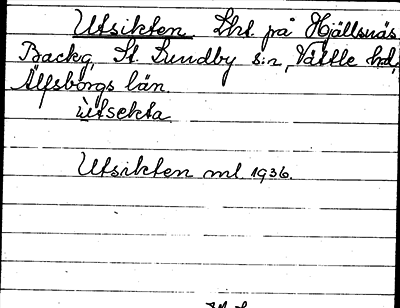 Utsikten Lht. på Hjällsnäs
Backg, St. Lundby s:n, Vättle hd,
Älfsborgs län.
ùtsekta
Utsikten ml 1936.